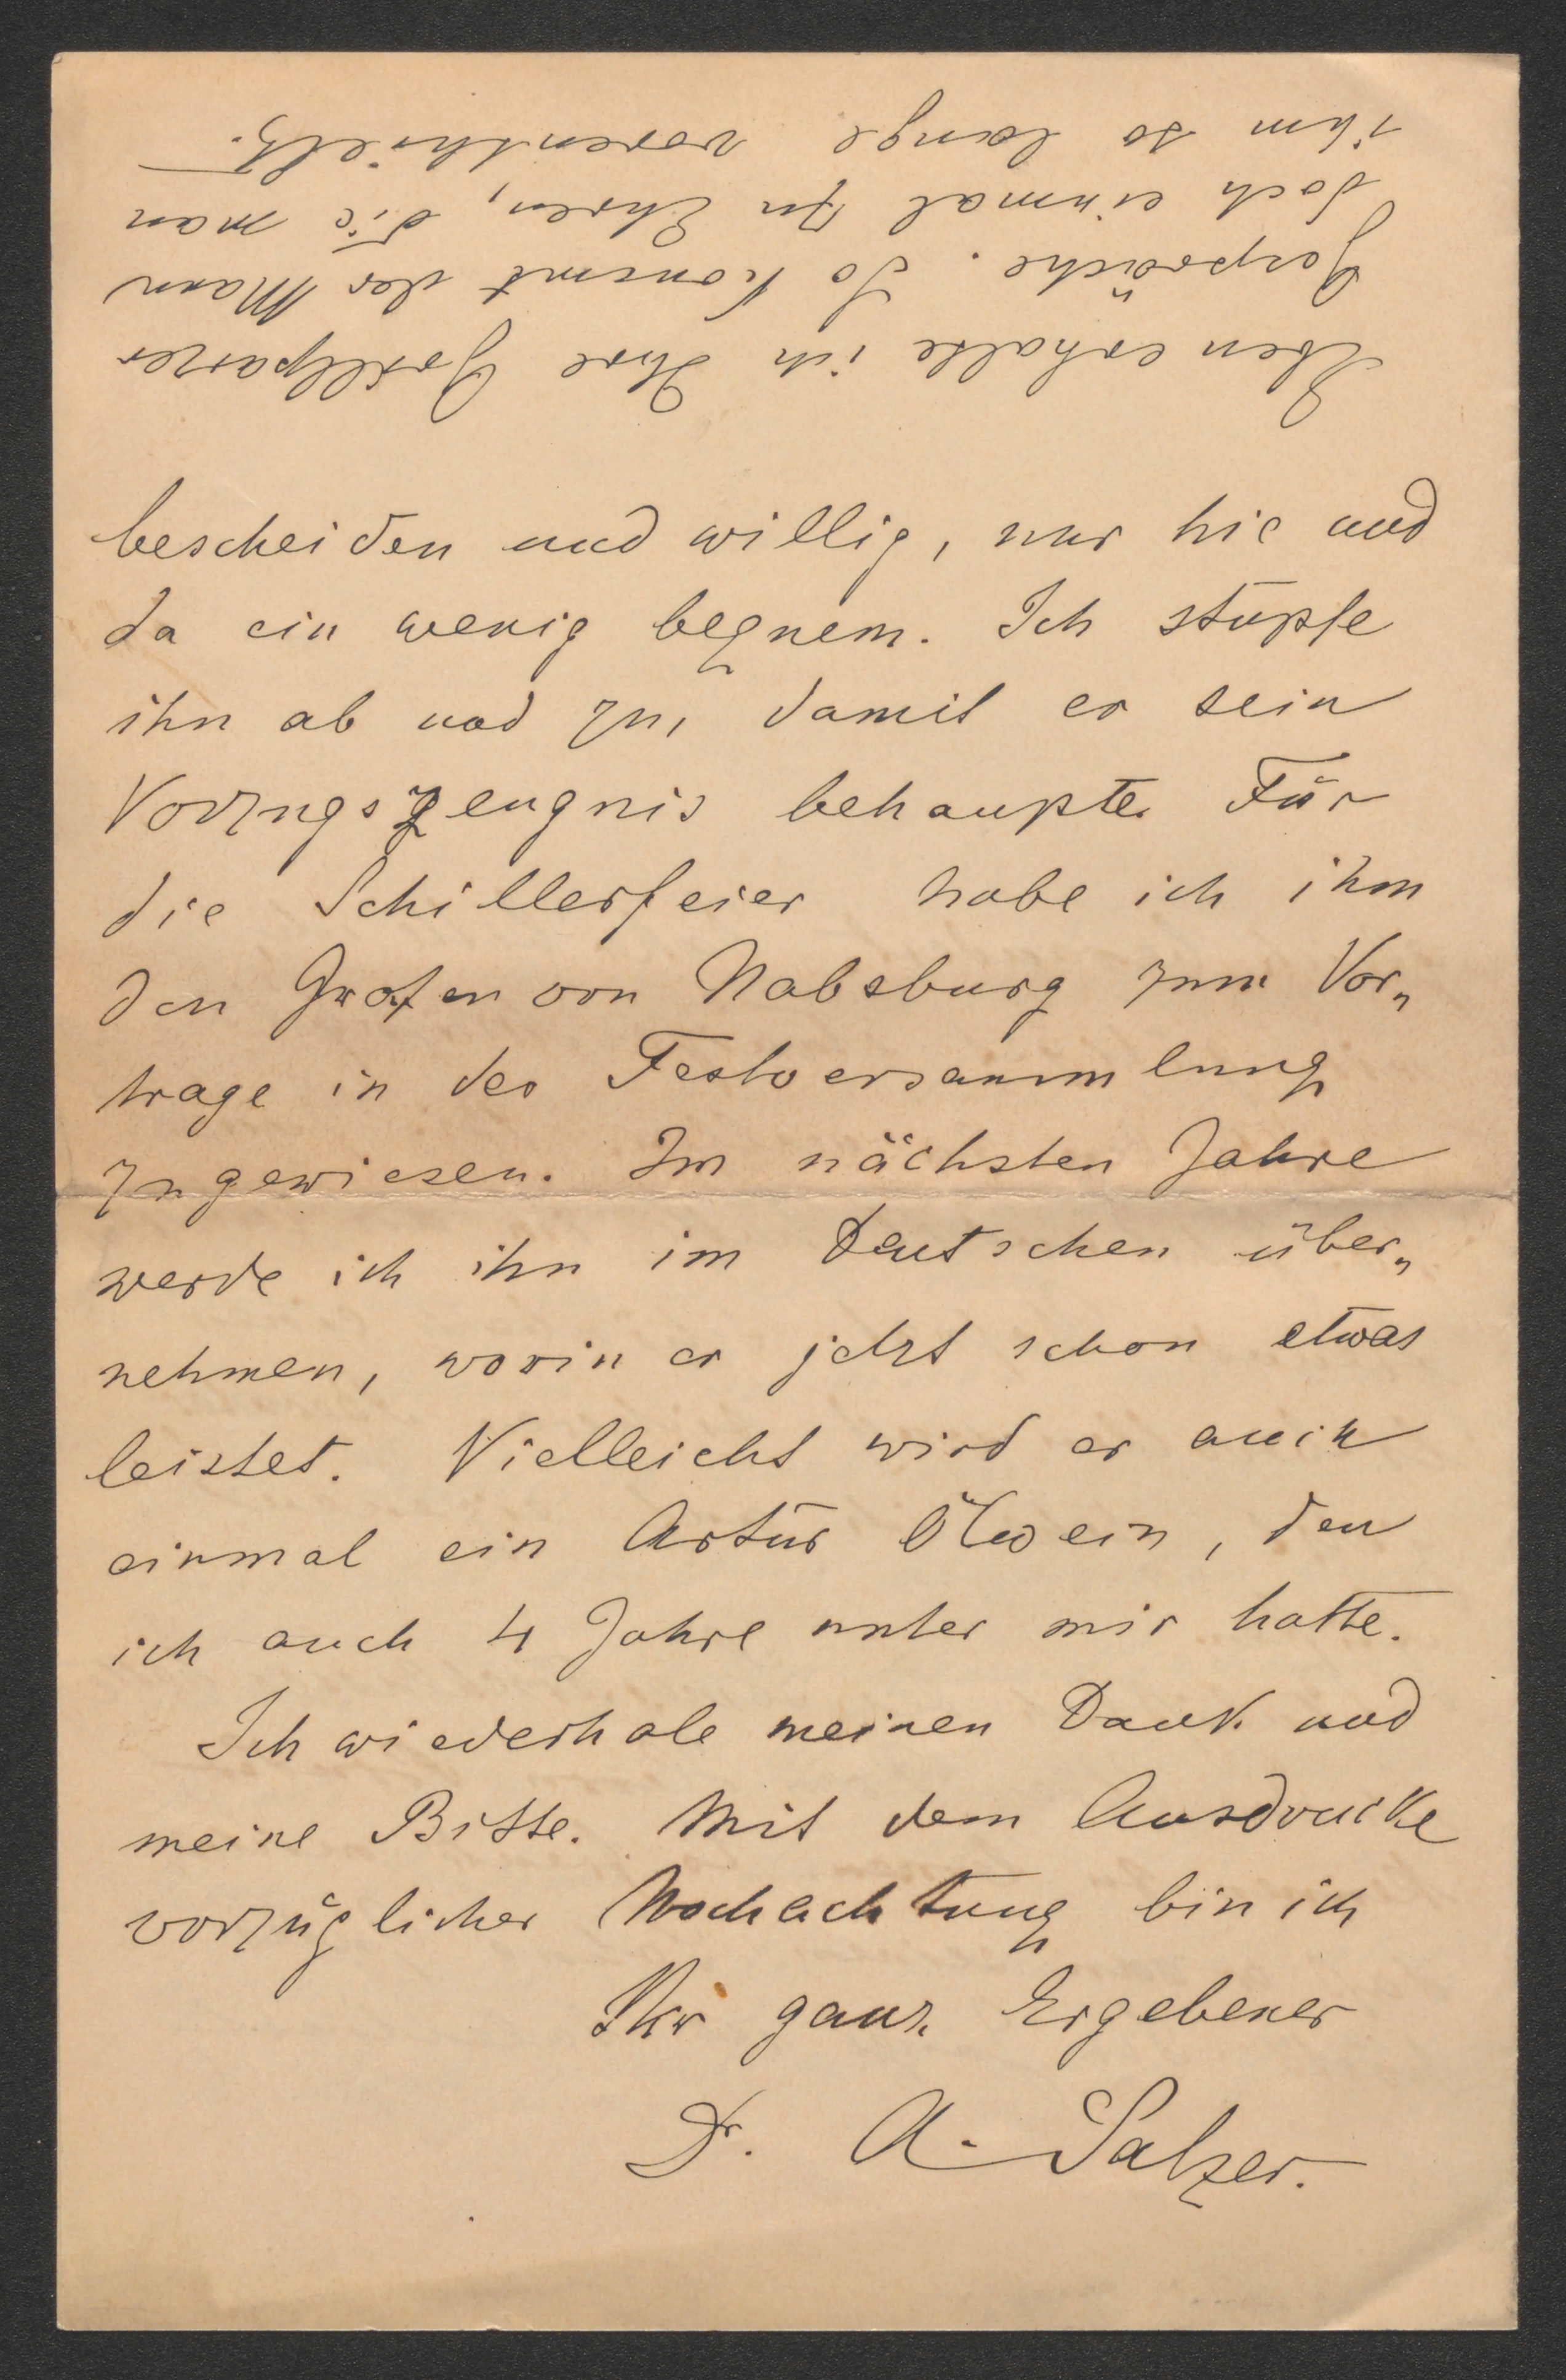 Eben erhalte ich Ihre Grillparzer
Gespräche. So kommt der Mann
doch einmal zu Ehren, die man
ihm so lange vorenthielt.
bescheiden und willig, nur hie und
da ein wenig bequem. Ich stupfe
ihn ab und zu, damit er sein
Vorzugszeugnis behaupte. Für
die Schillerfeier habe ich ihm
den Grafen von Habsburg zum Vor„
trage in der Festversammlung
zugewiesen. Im nächsten Jahre
werde ich ihn im Deutschen über„
nehmen, worin er jetzt schon etwas
leistet. Vielleicht wird er auch
einmal ein Artur Ölwein, den
ich auch 4 Jahre unter mir hatte.
Ich wiederhole meinen Dank und
meine Bitte. Mit dem Ausdrucke
vorzüglicher Hochachtung bin ich
Ihr ganz Ergebener
Dr. A. Salzer.